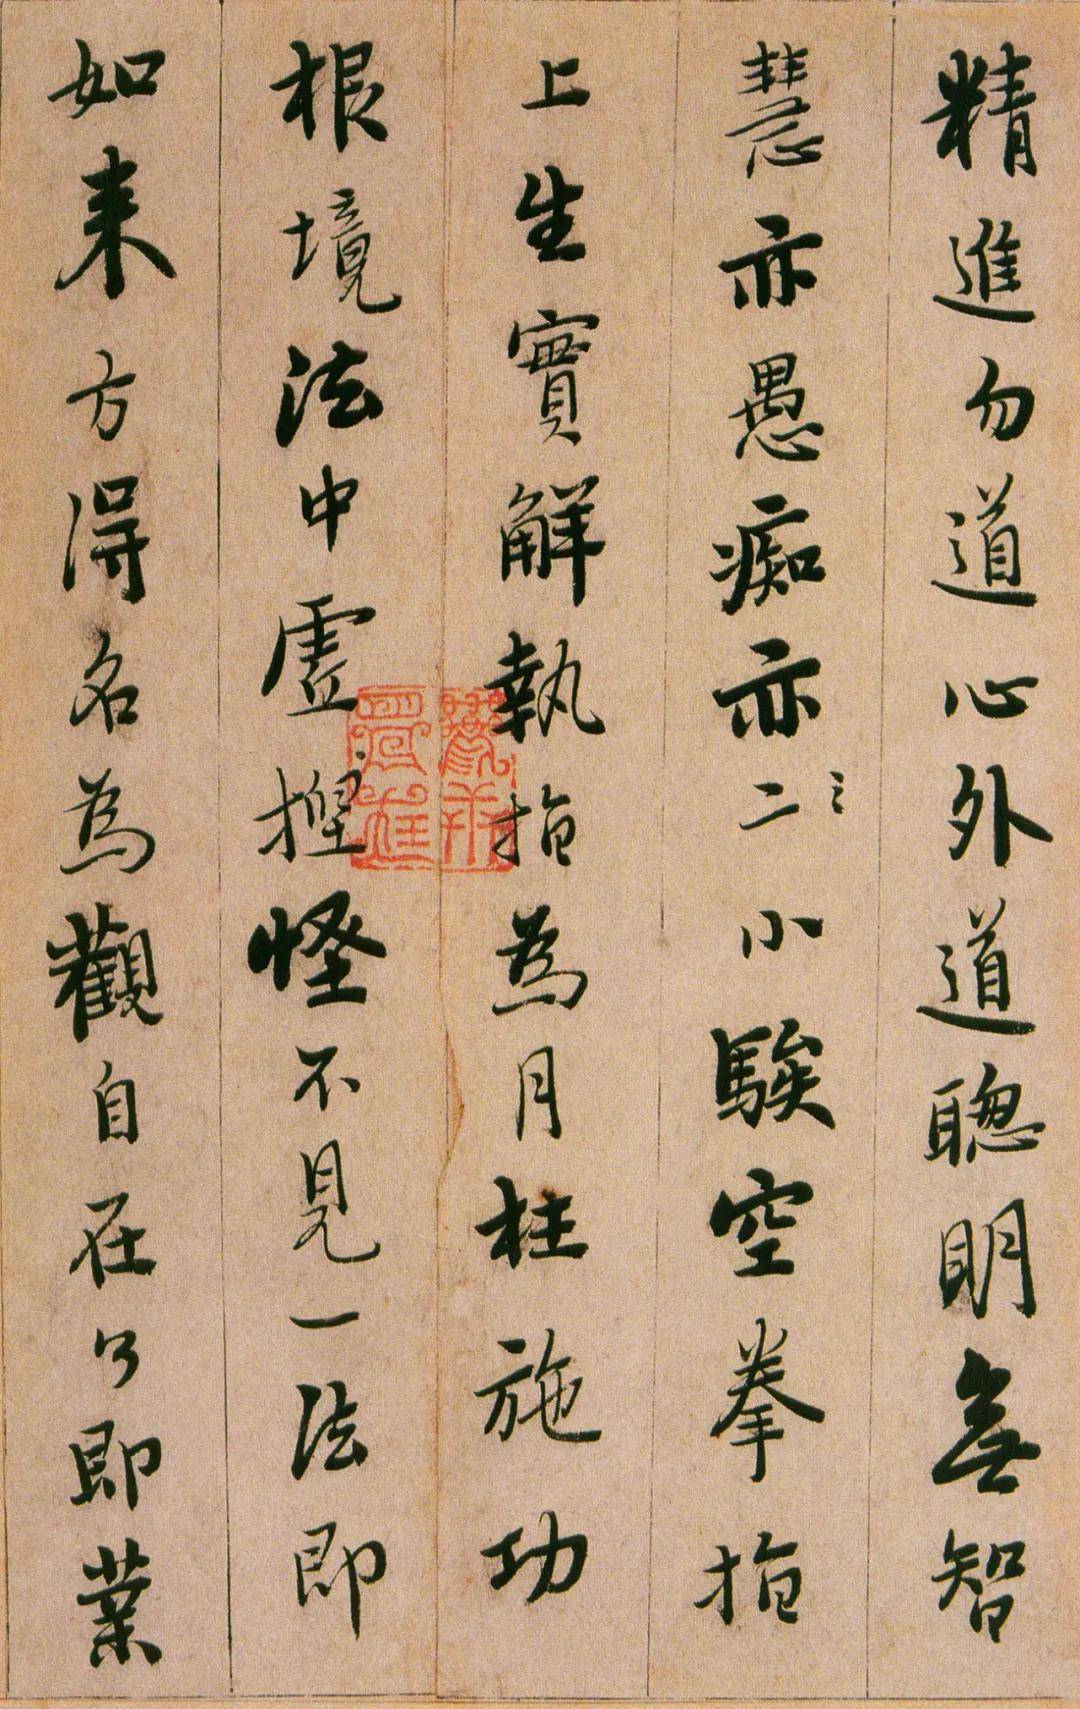 精進勿道心外道聰明無智
慧亦愚痴亦二小騃空拳指
上生實解執指為月枉施功
根境法中虛揑怪不見一法即
如来方得名為觀自在了即業